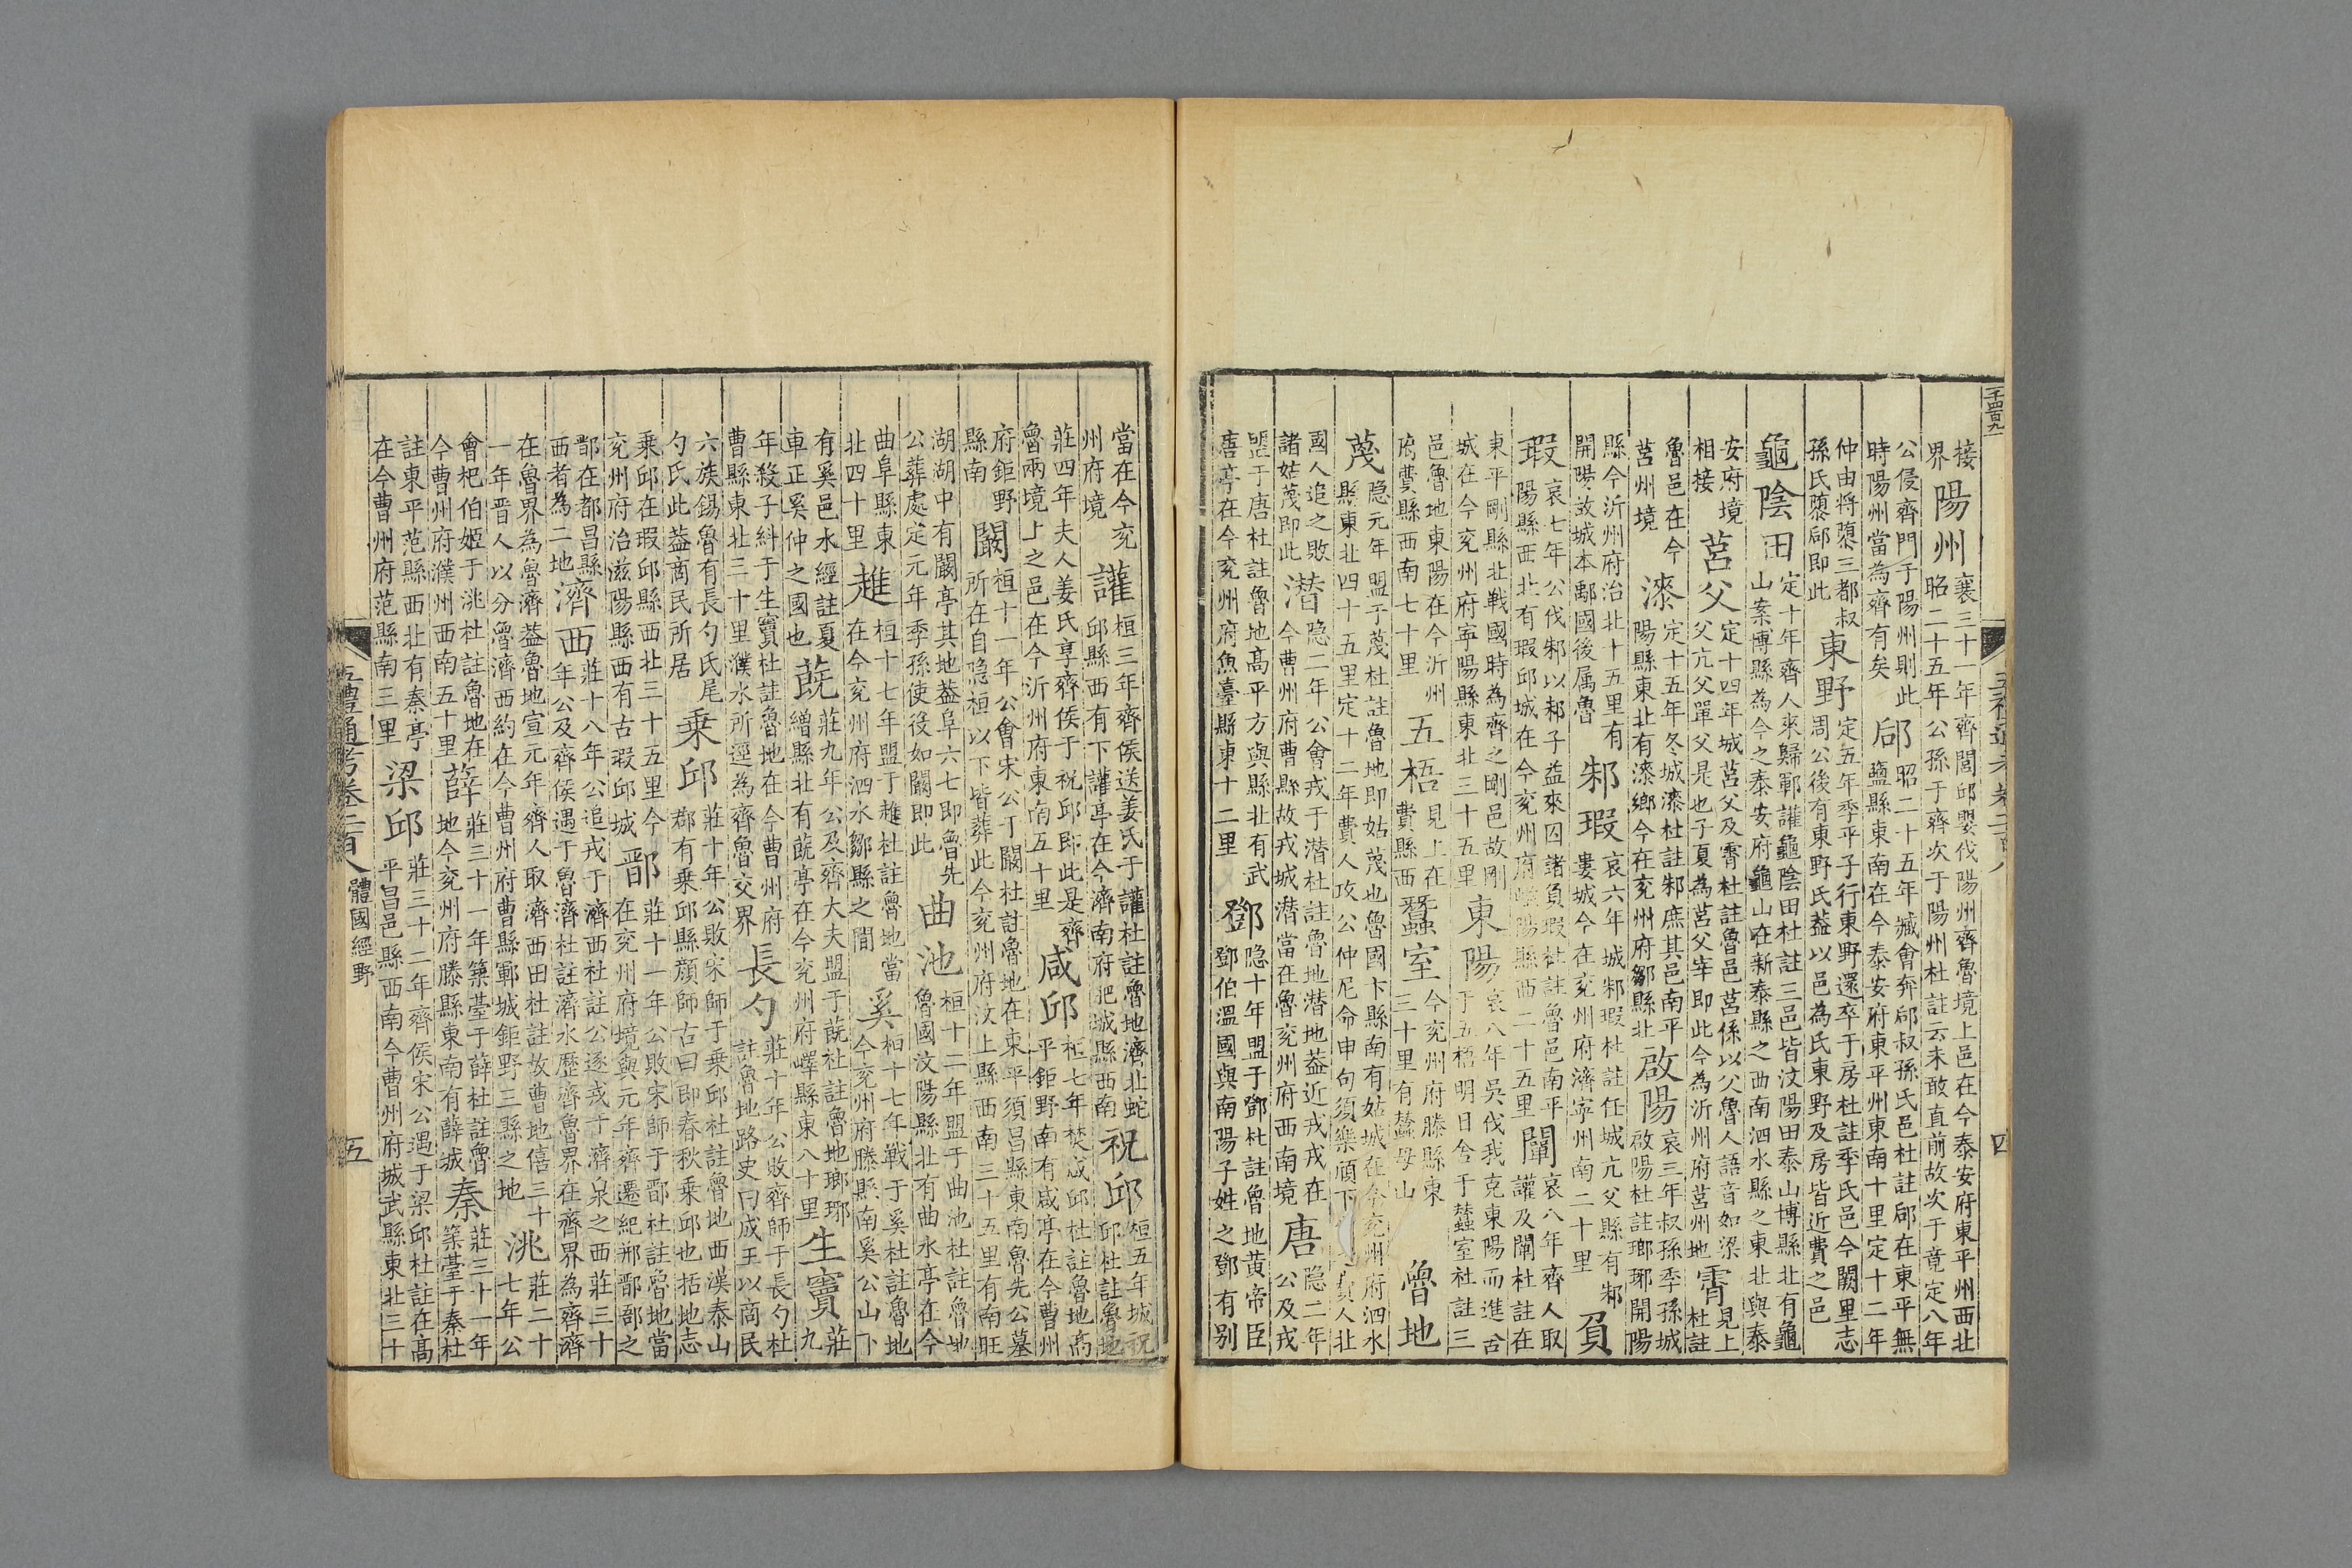 接界 陽州 襄三十一年齊閭邱嬰伐陽州齊魯境上邑在今泰安府東平州西北昭二十五年公孫于齊次于陽州杜註云未敢直前故次于竟定八年
公侵齊門于陽州則此時陽州當為齊有矣 郈 昭二十五年臧會奔郈叔孫氏邑杜註郈在東平無鹽縣東南在今泰安府東平州東南十里定十二年
仲由將墮三都叔孫氏墮郈即此 東野 定五年季平子行東野還卒于房杜註季氏邑今闕里志周公後有東野氏葢以邑為氏東野及房皆近費之邑
龜陰田 定十年齊人來歸鄆讙龜陰田杜註三邑皆汶陽田泰山博縣北有龜山案博縣為今之泰安府龜山在新泰縣之西南泗水縣之東北與泰
安府境相接 莒父 定十四年城莒父及霄杜註魯邑莒係以父魯人語音如梁父亢父單父是也子夏為莒父宰即此今為沂州府莒州地 霄 見上杜註
魯邑在今莒州境 漆 定十五年冬城漆杜註邾庶其邑南平陽縣東北有漆鄉今在兗州府鄒縣北 啟陽 哀三年叔孫季孫城啟陽杜註瑯琊開陽
縣今沂州府治北十五里有開陽故城本鄅國後属魯 邾瑕 哀六年城邾瑕杜註任城亢父縣有邾婁城今在兗州府濟寧州南二十里 負
瑕 哀七年公伐邾以邾子益來囚諸負瑕杜註魯邑南平陽縣西北有瑕邱城在今兗州府滋陽縣西二十五里 闡 哀八年齊人取讙及闡杜註在
東平剛縣北戰國時為齊之剛邑故剛城在今兗州府寧陽縣東北三十五里 東陽 哀八年吳伐我克東陽而進舍于五梧明日舍于蠶室杜註三
邑魯地東陽在今沂州府費縣西南七十里 五梧 見上在費縣西 蠶室 今兗州府滕縣東三十里有蠶母山 魯地
蔑 隐元年盟于蔑杜註魯地即姑蔑也魯國卞縣南有姑城在今兗州府泗水縣東北四十五里定十二年費人攻公仲尼命申句須樂頎下費人北
國人追之敗諸姑蔑即此 潛 隐二年公會戎于潛杜註魯地潛地葢近戎戎在今曹州府曹縣故戎城潛當在魯兗州府西南境 唐 隐二年公及戎
盟于唐杜註魯地高平方與縣北有武唐亭在今兗州府魚臺縣東十二里 鄧 隐十年盟于鄧杜註魯地黄帝臣鄧伯溫國與南陽子姓之鄧有别
四
當在今兗州府境 讙 桓三年齊侯送姜氏于讙杜註魯地濟北蛇邱縣西有下讙亭在今濟南府肥城縣西南 祝邱 桓五年城祝邱杜註魯地
莊四年夫人姜氏享齊侯于祝邱即此是齊魯兩境上之邑在今沂州府東南五十里 咸邱 桓七年焚咸邱杜註魯地高平鉅野南有咸亭在今曹州
府鉅野縣南 闞 桓十一年公會宋公于闞杜註魯地在東平須昌縣東南魯先公墓所在自隐桓以下皆葬此今兗州府汶上縣西南三十五里有南旺
湖湖中有闞亭其地葢阜六七即魯先公葬處定元年季孫使役如闞即此 曲池 桓十二年盟于曲池杜註魯地魯國汶陽縣北有曲水亭在今
曲阜縣東北四十里 趡 桓十七年盟于趡杜註魯地當在今兗州府泗水鄒縣之間 奚 桓十七年戰于奚杜註魯地今兗州府滕縣南奚公山下
有奚邑水經註夏車正奚仲之國也 蔇 莊九年公及齊大夫盟于蔇杜註魯地瑯琊繒縣北有蔇亭在今兗州府嶧縣東八十里 生竇 莊九
年殺子糾于生竇杜註魯地在今曹州府曹縣東北三十里濮水所逕為齊魯交界 長勺 莊十年公敗齊師于長勺杜註魯地路史曰成王以商民
六族錫魯有長勺氏尾勺氏此葢商民所居 乗邱 莊十年公敗宋師于乗邱杜註魯地西漢泰山郡有乗邱縣顔師古曰即春秋乗邱也括地志
乗邱在瑕邱縣西北三十五里今兗州府治滋陽縣西有古瑕邱城 鄑 莊十一年公敗宋師于鄑杜註魯地當在兗州府境與元年齊遷紀郱鄑郚之
鄑在都昌縣西者為二地 濟西 莊十八年公追戎于濟西杜註公逐戎于濟泉之西莊三十年公及齊侯遇于魯濟杜註濟水歷齊魯界在齊界為齊濟
在魯界為魯濟葢魯地宣元年齊人取濟西田杜註故曹地僖三十一年晋人以分魯濟西約在今曹州府曹縣鄆城鉅野三縣之地 洮 莊二十七年公
會杞伯姬于洮杜註魯地在今曹州府濮州西南五十里 薛 莊三十一年築臺于薛杜註魯地今兗州府滕縣東南有薛城 秦 莊三十一年築臺于秦杜
註東平范縣西北有秦亭在今曹州府范縣南三里 梁邱 莊三十二年齊侯宋公遇于梁邱杜註在高平昌邑縣西南今曹州府城武縣東北三十
五禮通考卷二百八 體國經野 五